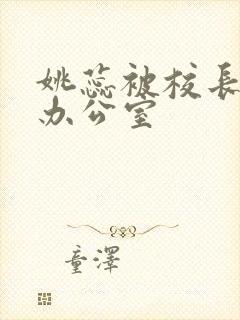 姚蕊被校長
办公室
童澤